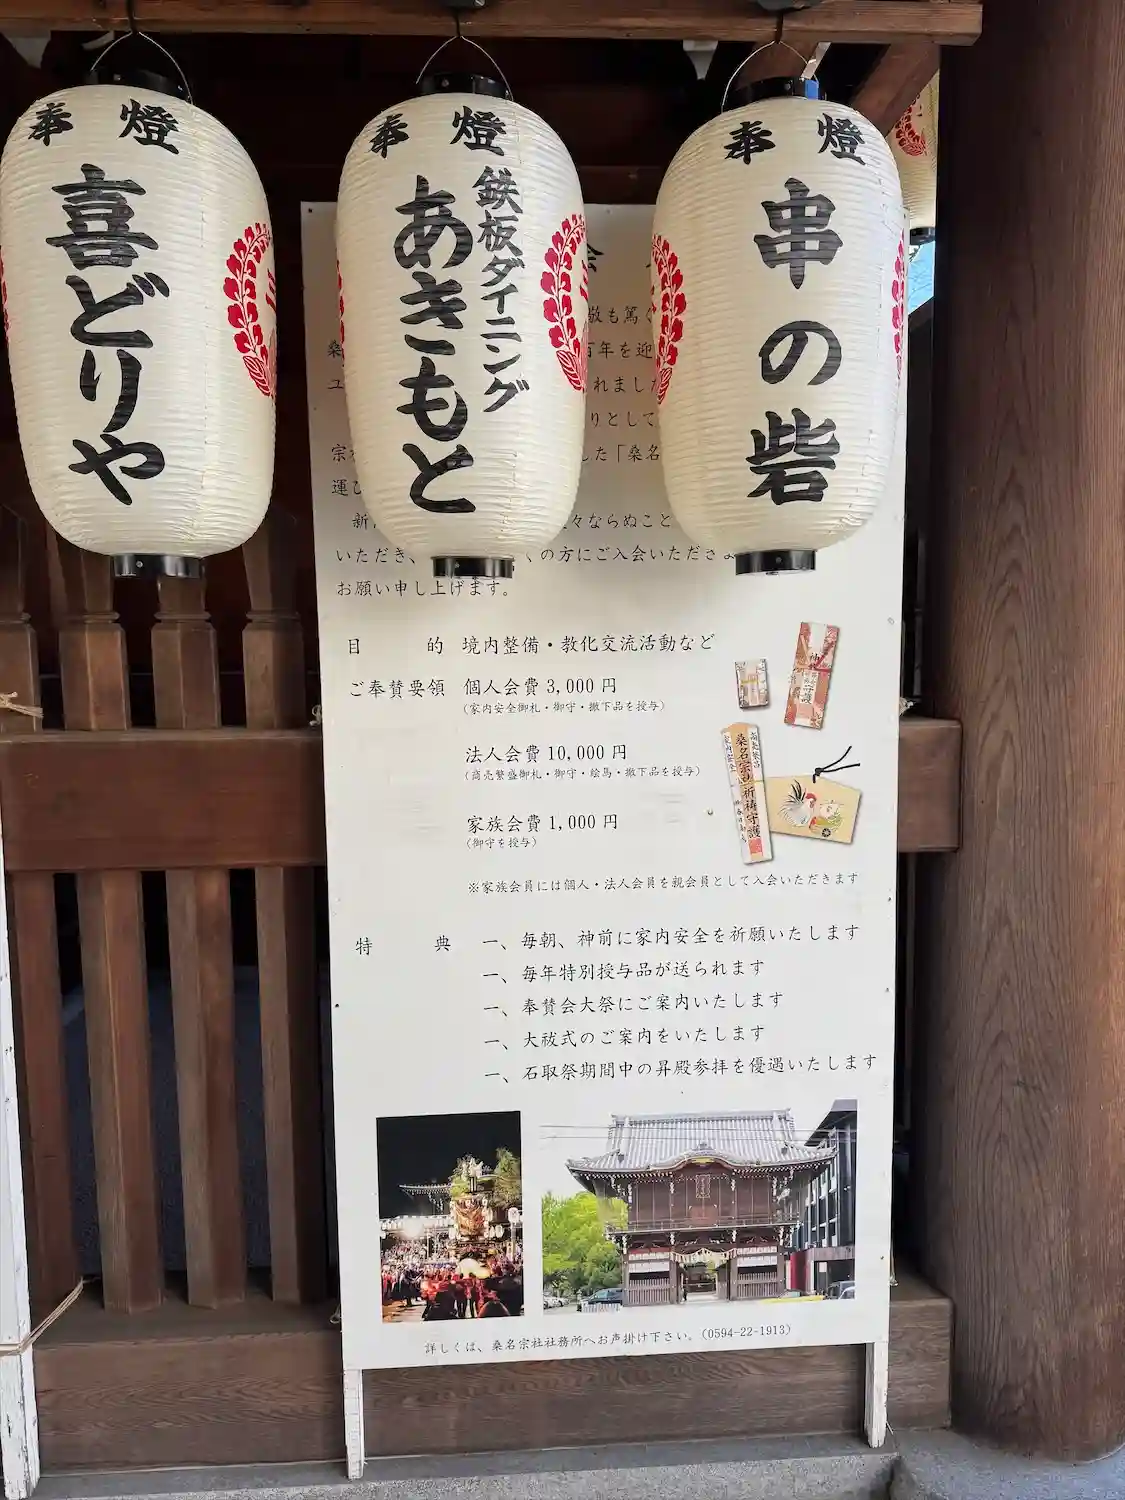 奉燈
喜どりや
奉燈
鉄板ダイニング
あきもと
奉燈
串の砦
会
敬も篤く
桑 百年を迎
ユ れました
りとして
宗 した「桑名
運び
新 々ならぬこと
いただき、 くの方にご入会いただきま
お願い申し上げます。
目的 境内整備・教化交流活動など
ご奉賛要領 個人会費 3,000 円
(家内安全御札・御守・撤下品を授与)
法人会費 10,000 円
(商売繁盛御札・御守・絵馬・撤下品を授与)
家族会費 1,000 円
(御守を授与)
※家族会員には個人・法人会員を親会員として入会いただきます
商売繁昌
家内安全
桑名宗社祈祷守護
守護
特典 一、毎朝、神前に家内安全を祈願いたします
一、毎年特別授与品が送られます
一、奉賛会大祭にご案内いたします
一、大祓式のご案内をいたします
一、石取祭期間中の昇殿参拝を優遇いたします
詳しくは、桑名宗社社務所へお声掛け下さい。(0594-22-1913)